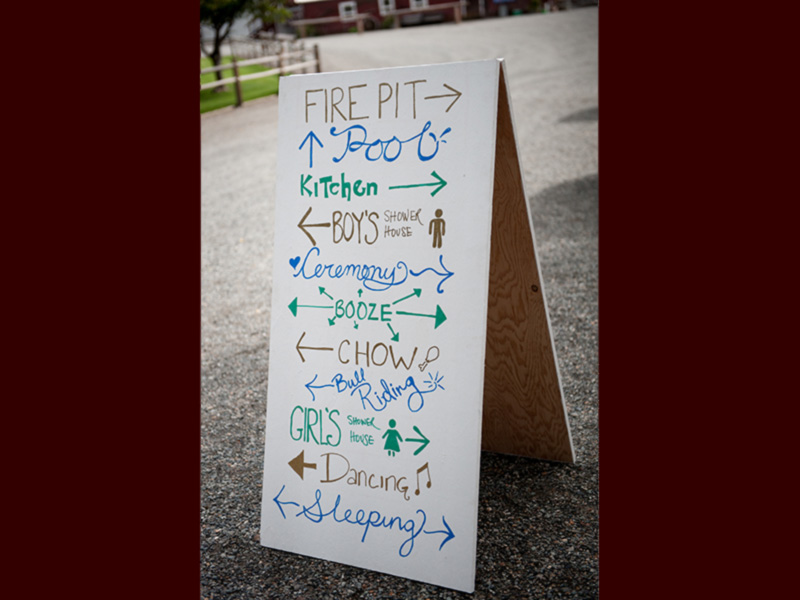 FIRE PIT
Pool
Kitchen
BOY'S SHOWER HOUSE
Ceremony
BOOZE
CHOW
Bull Riding
GIRL'S SHOWER HOUSE
Dancing
Sleeping